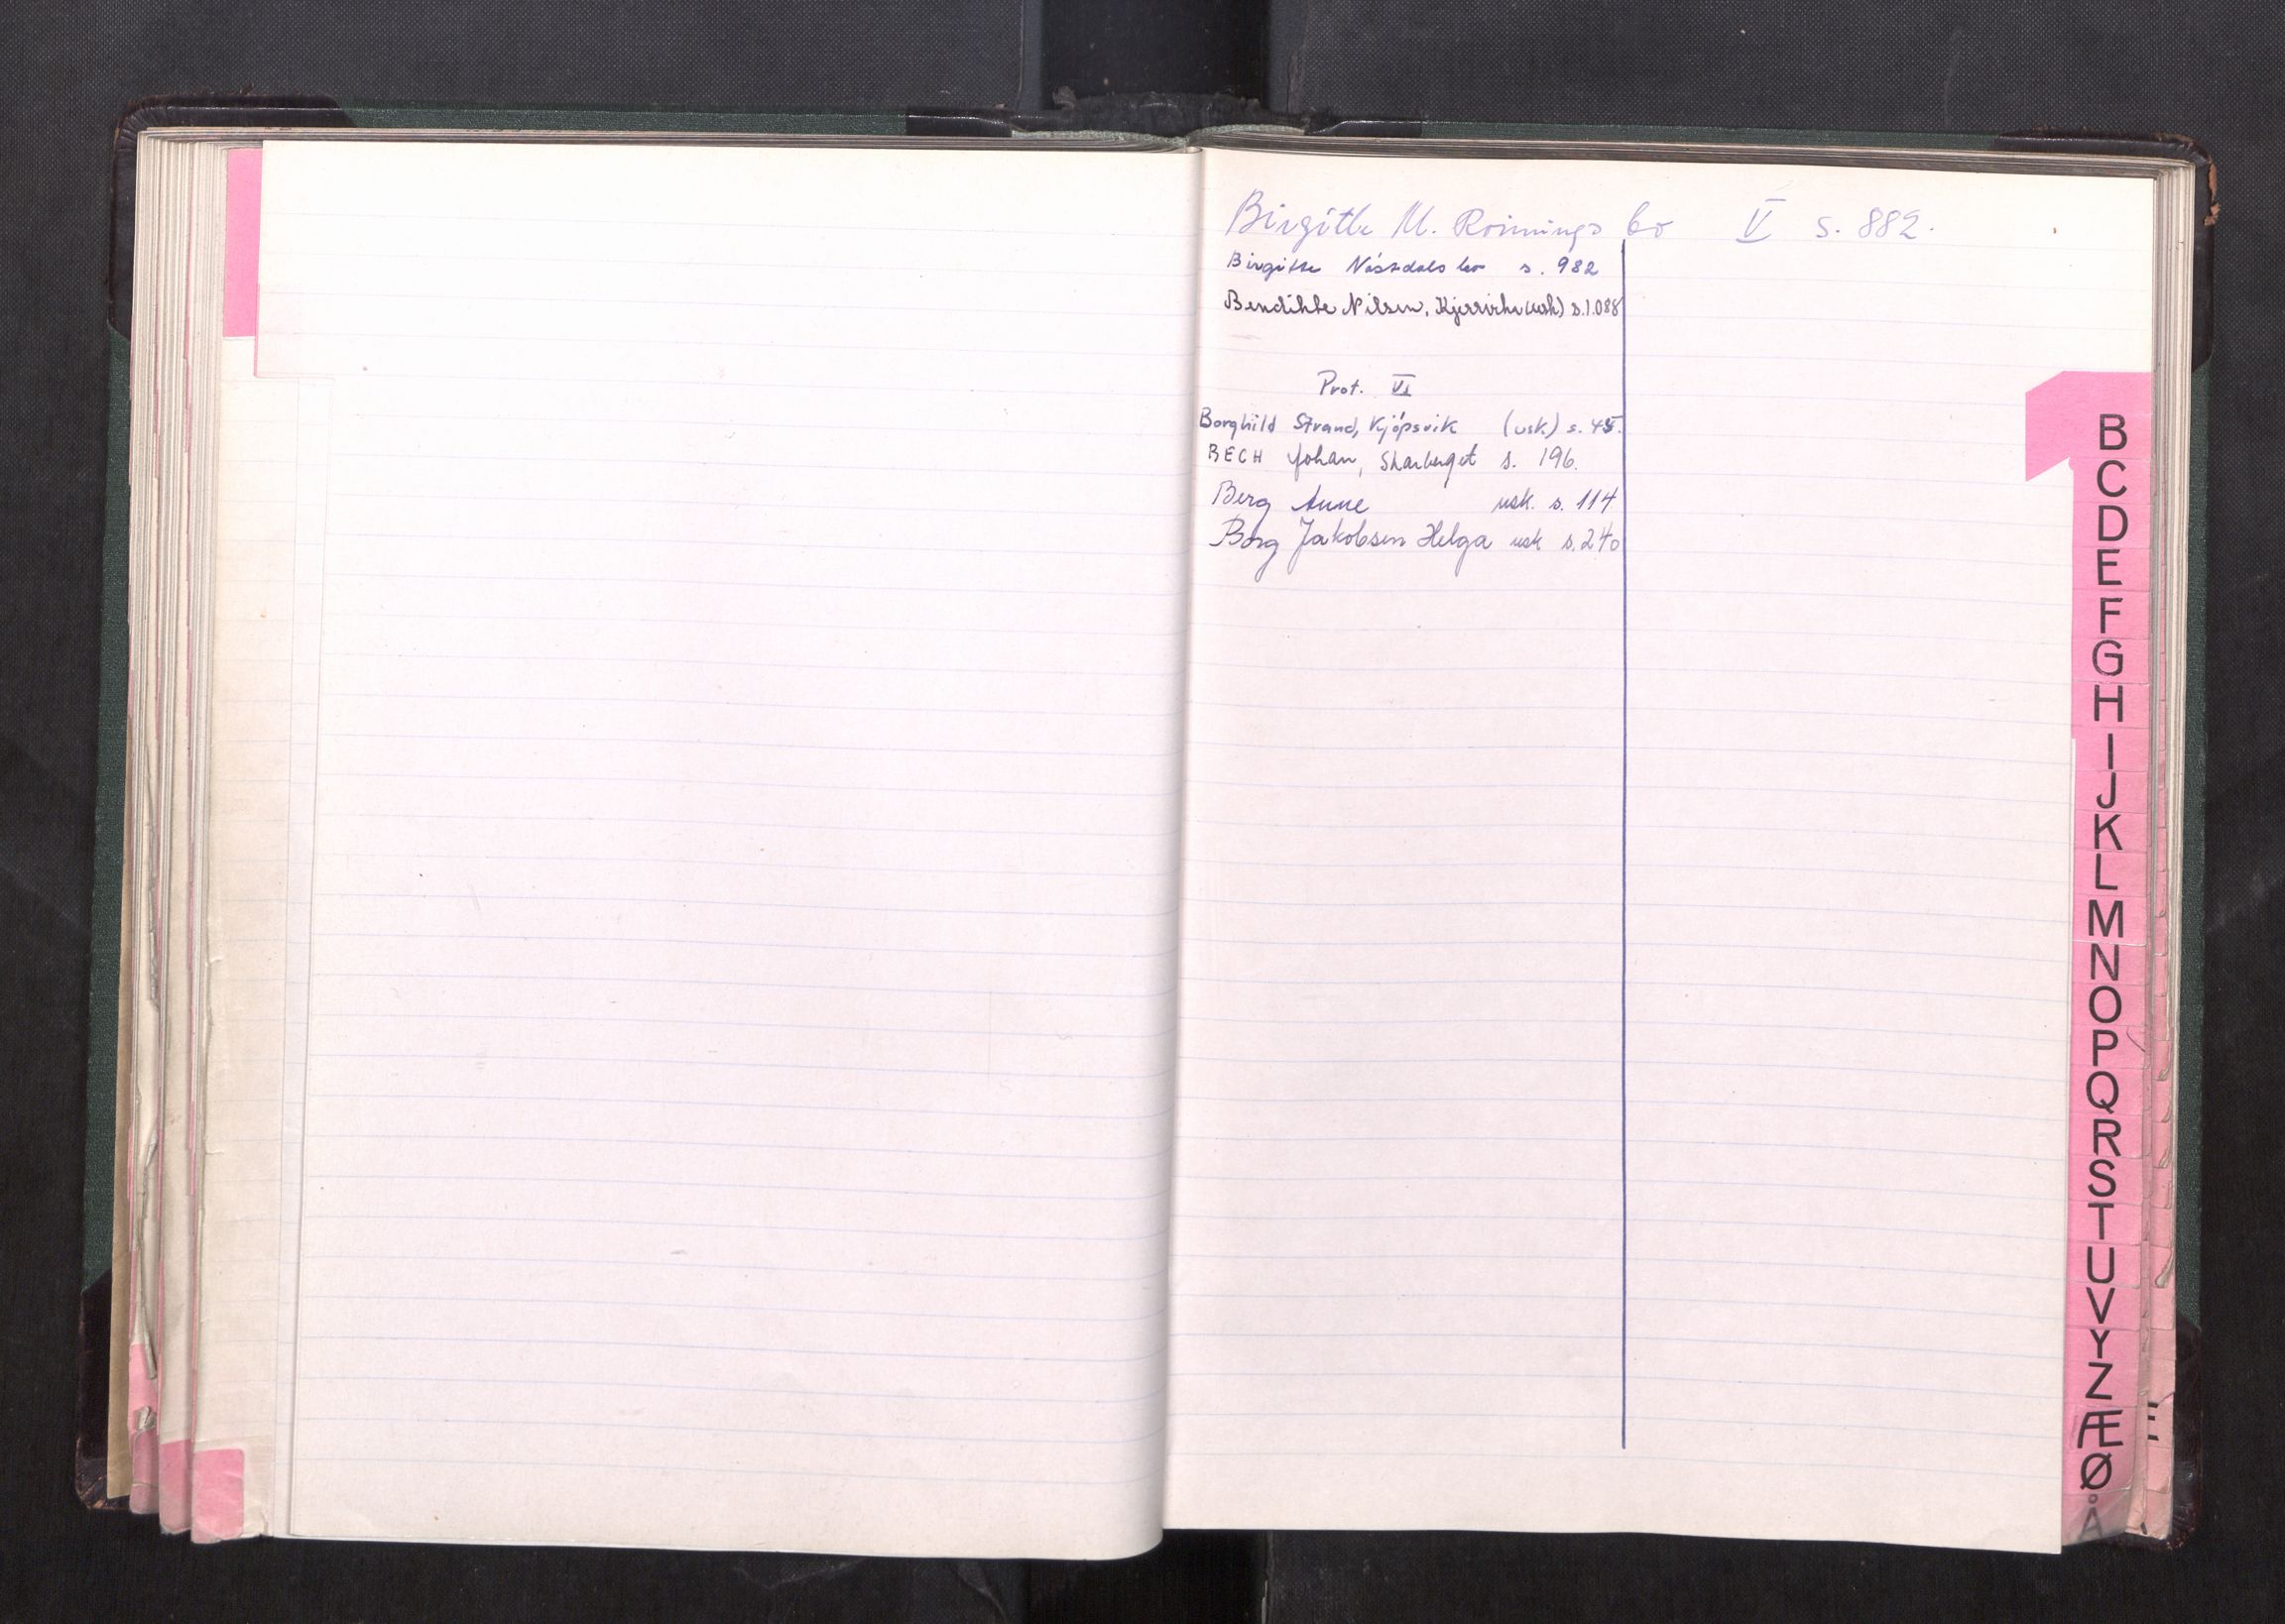 Birgitte M. Rønnings bo V s. 882.
Birgitte Næstdals bo s. 982
Bendikte Nilsen, (usk) s. 1.088
Prot. VI
Borghild Strand, Kjøpsvik (usk.) s. 45.
BECH Johan, Skarberget s. 196.
Berg Anne usk. s. 114
Borg Jakobsen Helga usk s. 240
B
C
D
E
F
G
H
I
J
K
L
M
N
O
P
Q
R
S
T
U
V
Y
Z
Æ
Ø
Å